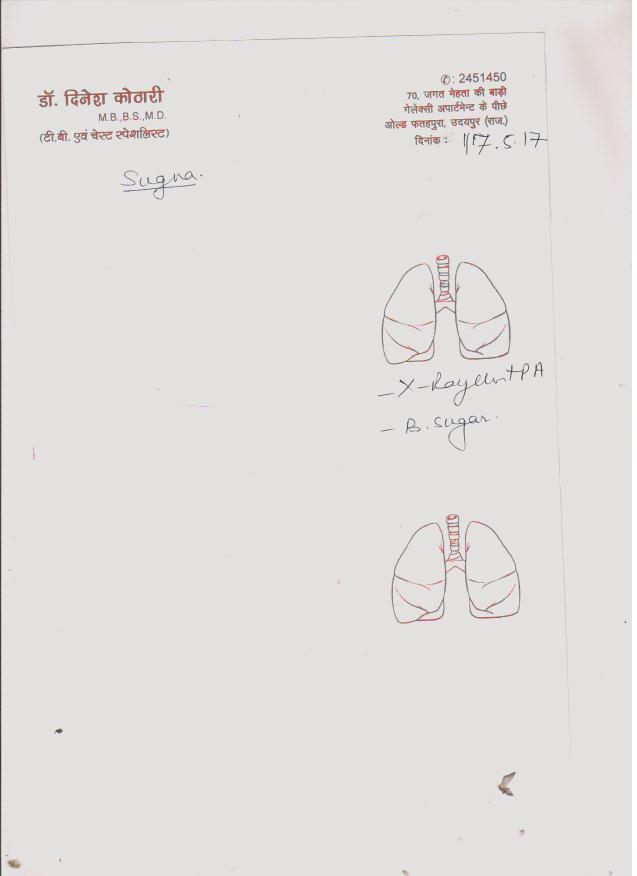 डॉ. दिनेश कोठारी
M.B.,B.S.,M.D.
(टी.बी. एवं चेस्ट स्पेशलिस्ट)
✆: 2451450
70, जगत मेहता की बाड़ी
गेलेक्सी अपार्टमेन्ट के पीछे
ओल्ड फतहपुरा, उदयपुर (राज.)
दिनांक : 17.5.17
Sugna.
- X-Ray Chest PA
- B. Sugar.